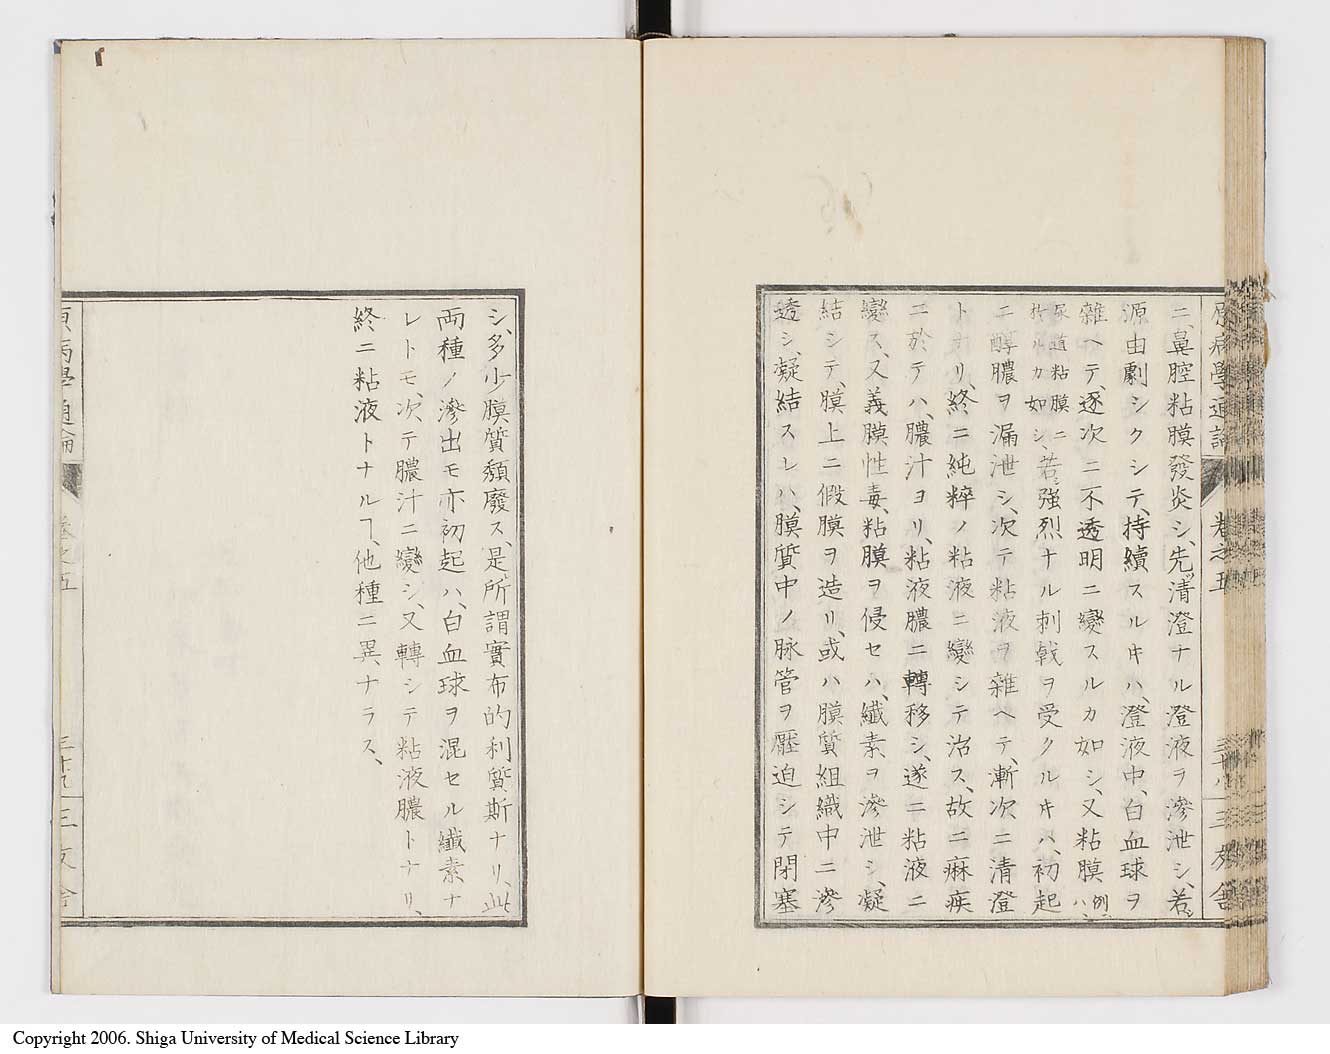 原病學通論 巻之五 三十八 三友舍
ニ、鼻腔粘膜發炎シ、先清澄ナル澄液ヲ滲泄シ、若シ
源由劇シクシテ、持續スルキハ、澄液中、白血球ヲ
雜ヘテ、逐次ニ不透明ニ變スルカ如シ、又粘膜例之ハ
尿道粘膜ニ於ルカ如シ、若シ強烈ナル刺戟ヲ受クルキハ、初起
ニ醇膿ヲ漏泄シ、次テ粘液ヲ雜ヘテ、漸次ニ清澄
トナリ、終ニ純粹ノ粘液ニ變シテ治ス、故ニ痳疾
ニ於テハ、膿汁ヨリ、粘液膿ニ轉移シ、遂ニ粘液ニ
變ス、又義膜性毒、粘膜ヲ侵セハ、纎素ヲ滲泄シ、凝
結シテ、膜上ニ假膜ヲ造リ、或ハ膜質組織中ニ滲
透シ、凝結スレハ、膜質中ノ脉管ヲ壓迫シテ閉塞
シ、多少膜質頽廢ス、是所謂實布的利質斯ナリ、此
両種ノ滲出モ亦初起ハ、白血球ヲ混セル纎素ナ
レトモ、次テ膿汁ニ變シ、又轉シテ粘液膿トナリ、
終ニ粘液トナルヿ、他種ニ異ナラス、
原病學通論 巻之五 三十九 三友舍
Copyright 2006. Shiga University of Medical Science Library